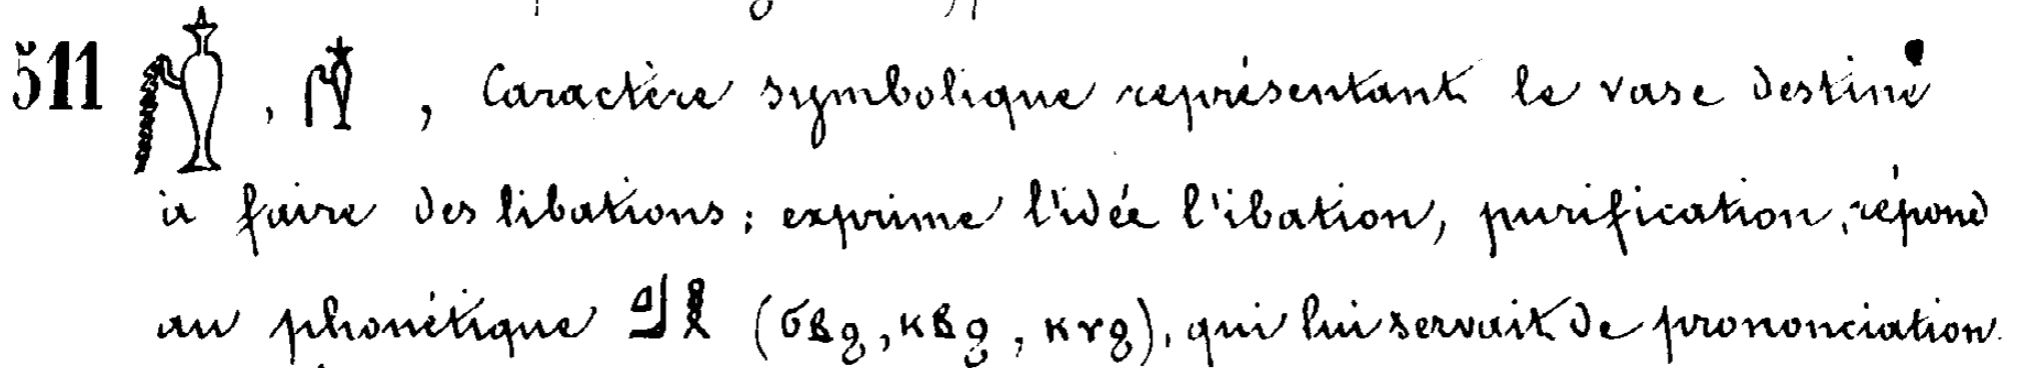 511 𓏁, 𓏁, Caractère symbolique représentant le vase destiné
à faire des libations; exprime l'idée l'ibation, purification, répond
au phonétique 𓈎𓃀𓎛 (ϭⲃϩ, ⲕⲃϩ, ⲕⲩϩ), qui lui servait de prononciation.